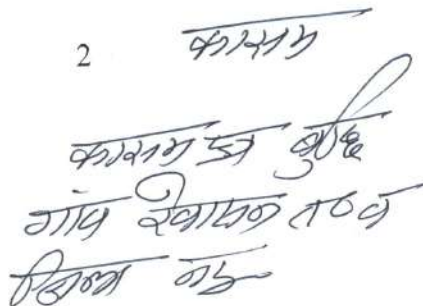 2 काराम
काराम पुत्र बुद्धि
गांव रेवासन त० व
जिला नूह